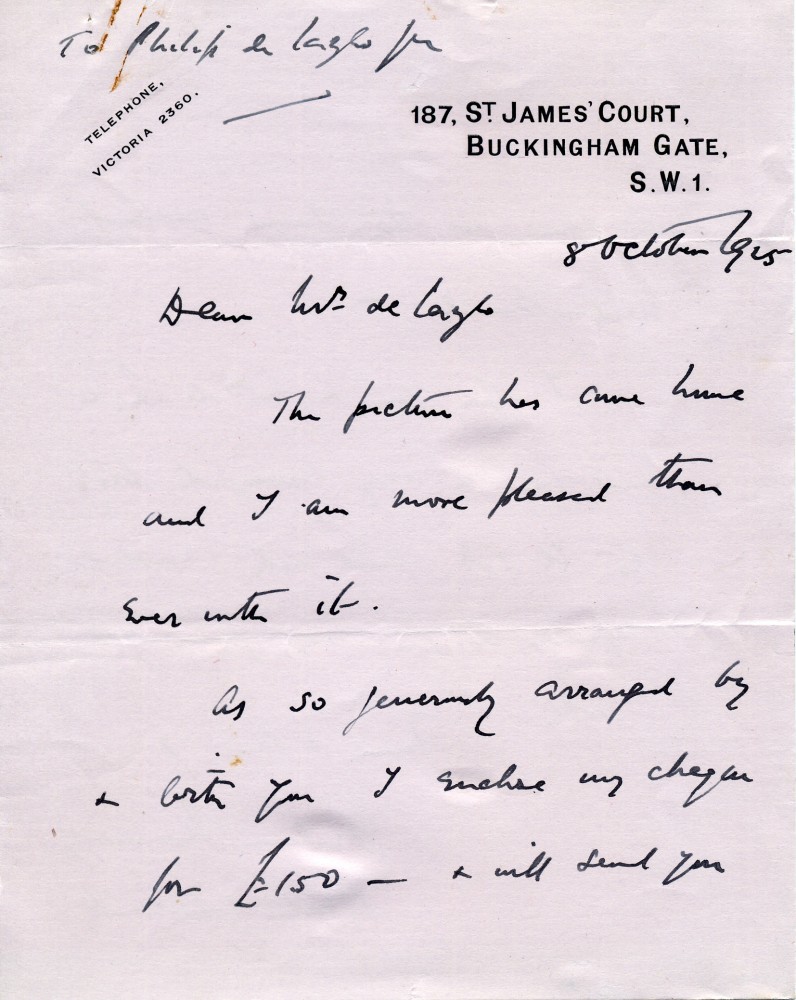 To Philip de László for
TELEPHONE,
VICTORIA 2360.
187, ST JAMES' COURT,
BUCKINGHAM GATE,
S.W.1.
8 October 1925
Dear Mr. de Laszlo
The picture has come home
and I am more pleased than
ever with it.
As so generously arranged by
& with you I enclose my cheque
for £150 — & will send you